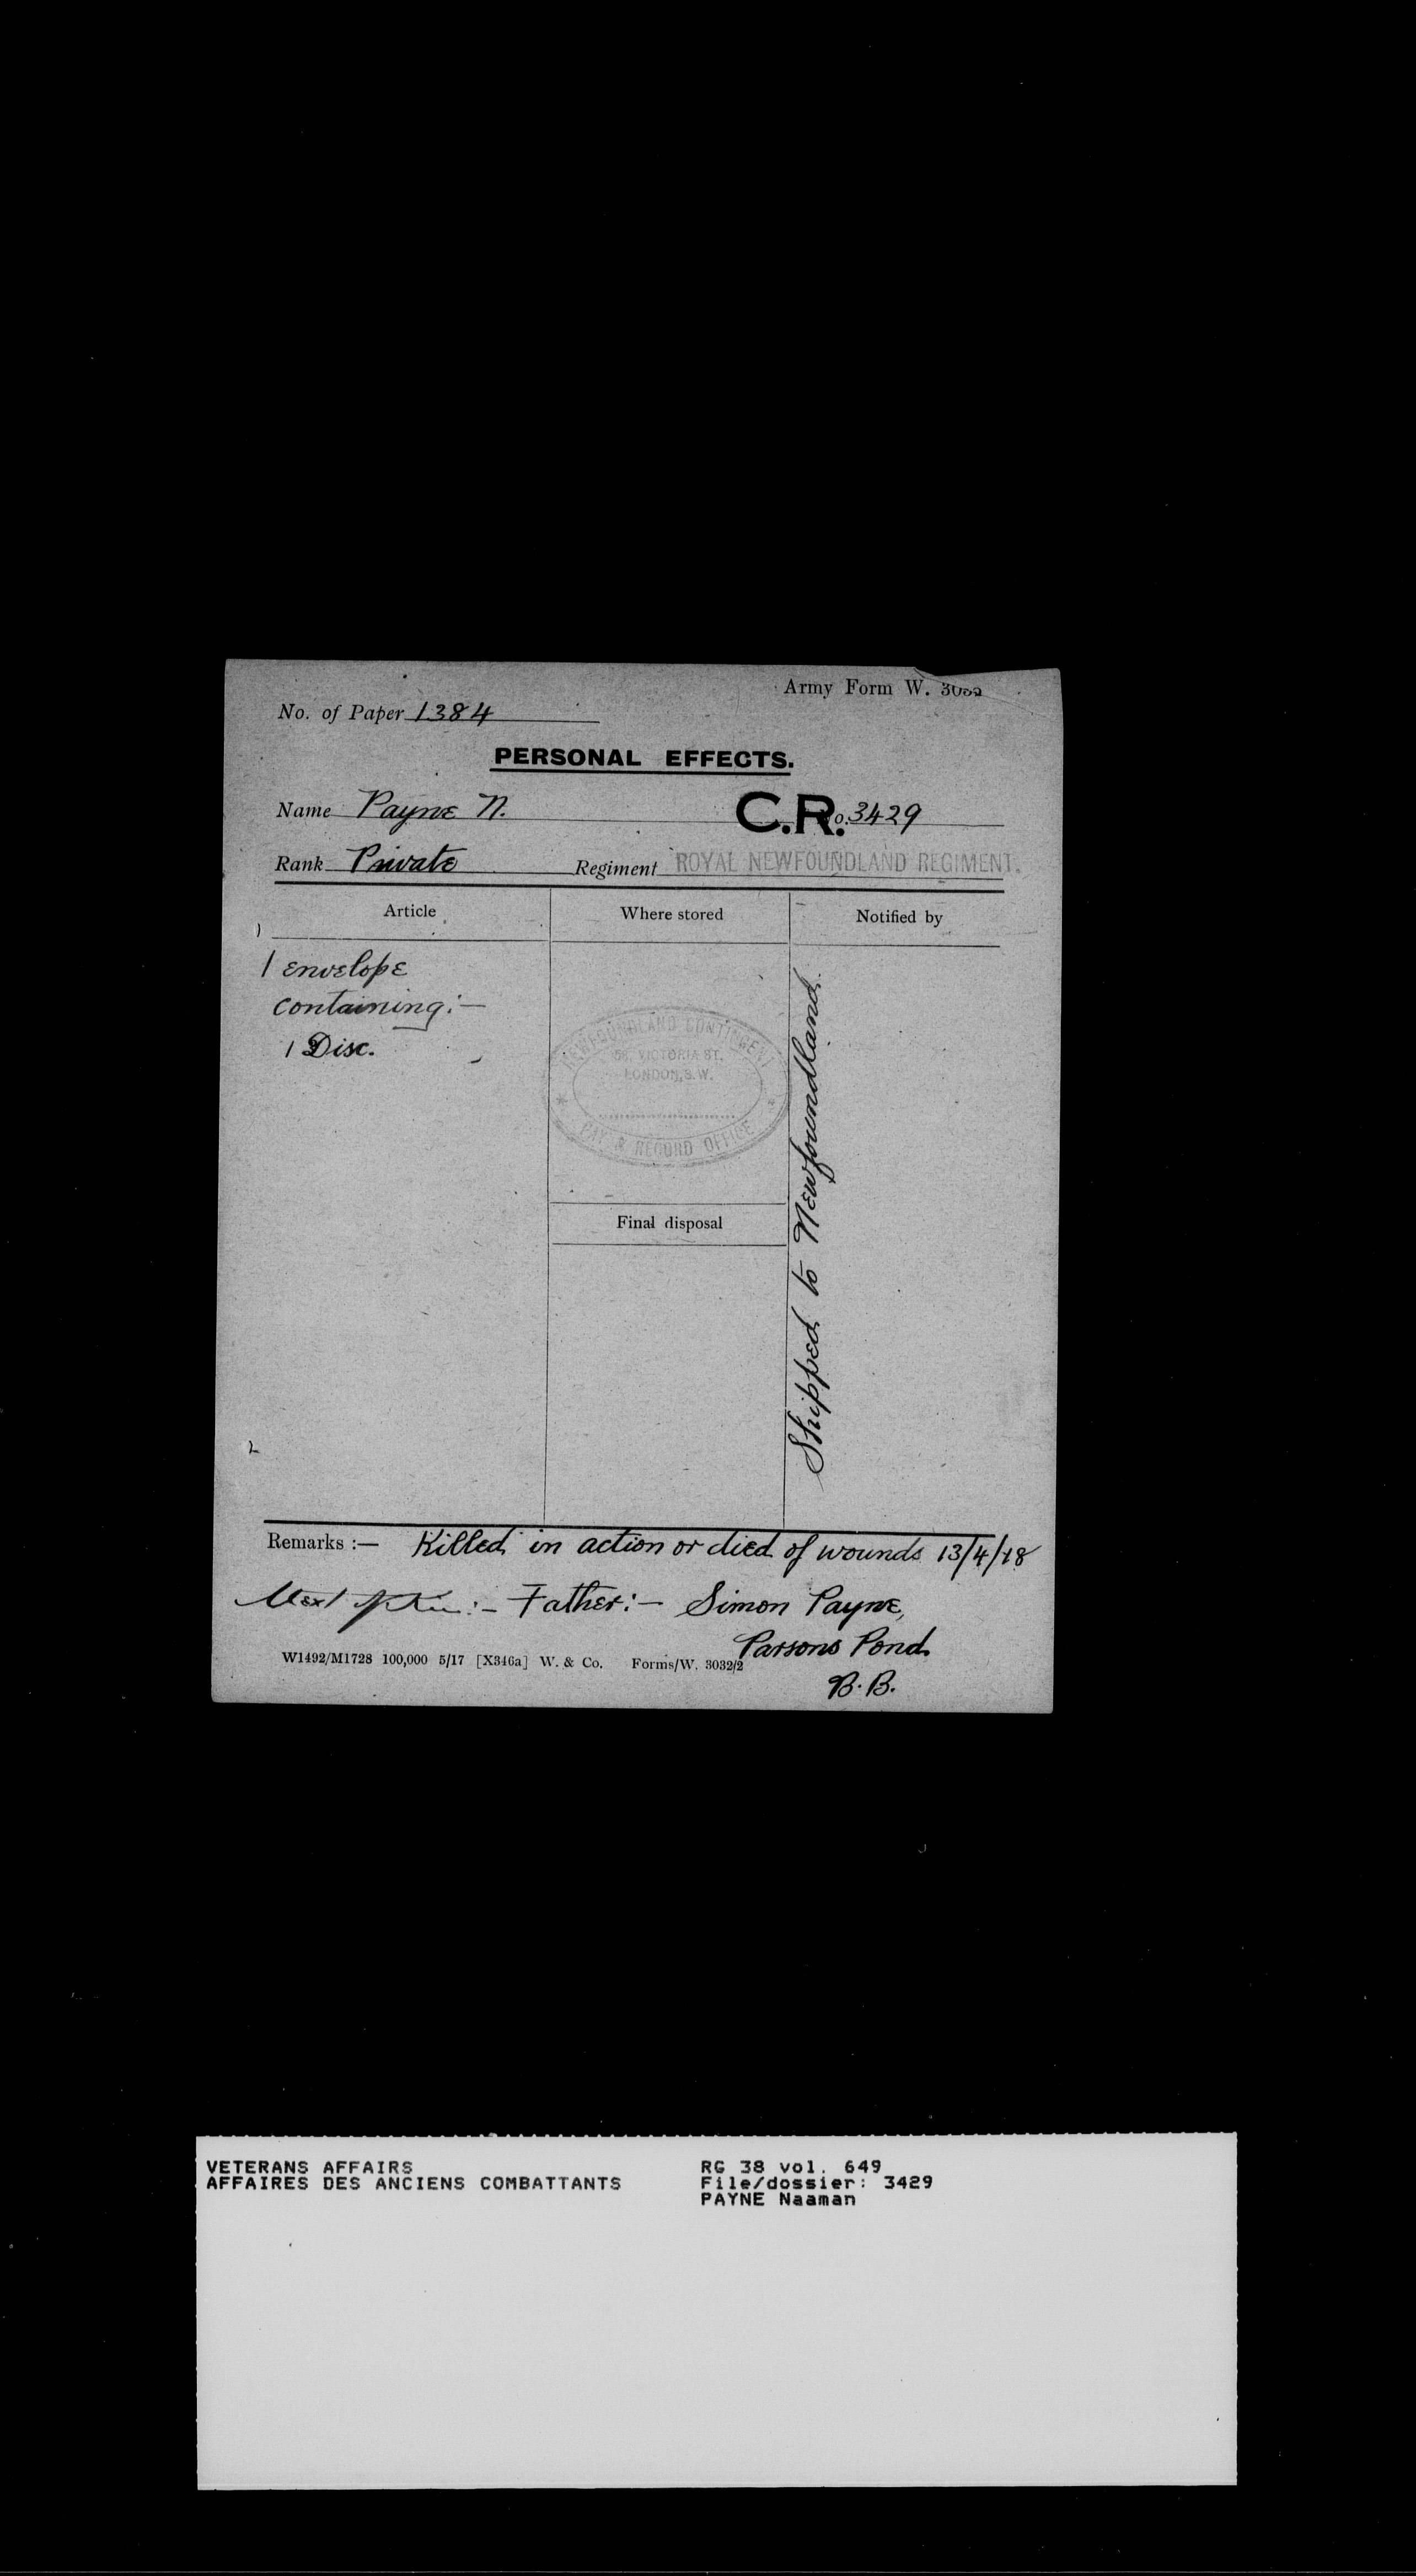 Army Form W. 3032
No. of Paper 1384
PERSONAL EFFECTS.
Name Payne N. C.R. o. 3429
Rank Private Regiment ROYAL NEWFOUNDLAND REGIMENT.
Article Where stored Notified by
1 envelope
containing:—
1 Disc.
NEWFOUNDLAND CONTINGENT
58, VICTORIA ST.
LONDON, S.W.
PAY & RECORD OFFICE
Shipped to Newfoundland
Final disposal
Remarks :— Killed in action or died of wounds 13/4/18
Next of kin:— Father:— Simon Payne,
Parsons Pond
B.B.
W1492/M1728 100,000 5/17 [X346a] W. & Co. Forms/W. 3032/2
VETERANS AFFAIRS RG 38 vol. 649
AFFAIRES DES ANCIENS COMBATTANTS File/dossier: 3429
PAYNE Naaman